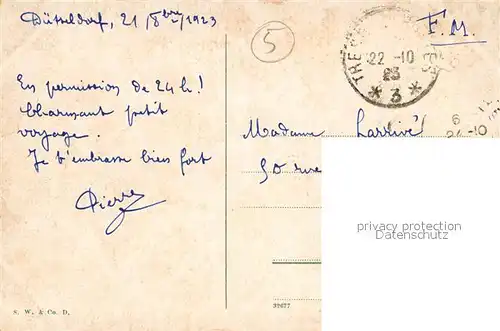 Düsseldorf, 21 / 8bre / 1923
5
F. M.
TRE
22 - 10
23
* 3 *
6
24 - 10
En permission de 24 h !
Charmant petit
voyage.
Je t'embrasse bien fort
Pierre
Madame Larrivé
50 rue
privacy protection
Datenschutz
S. W. & Co. D.
32677